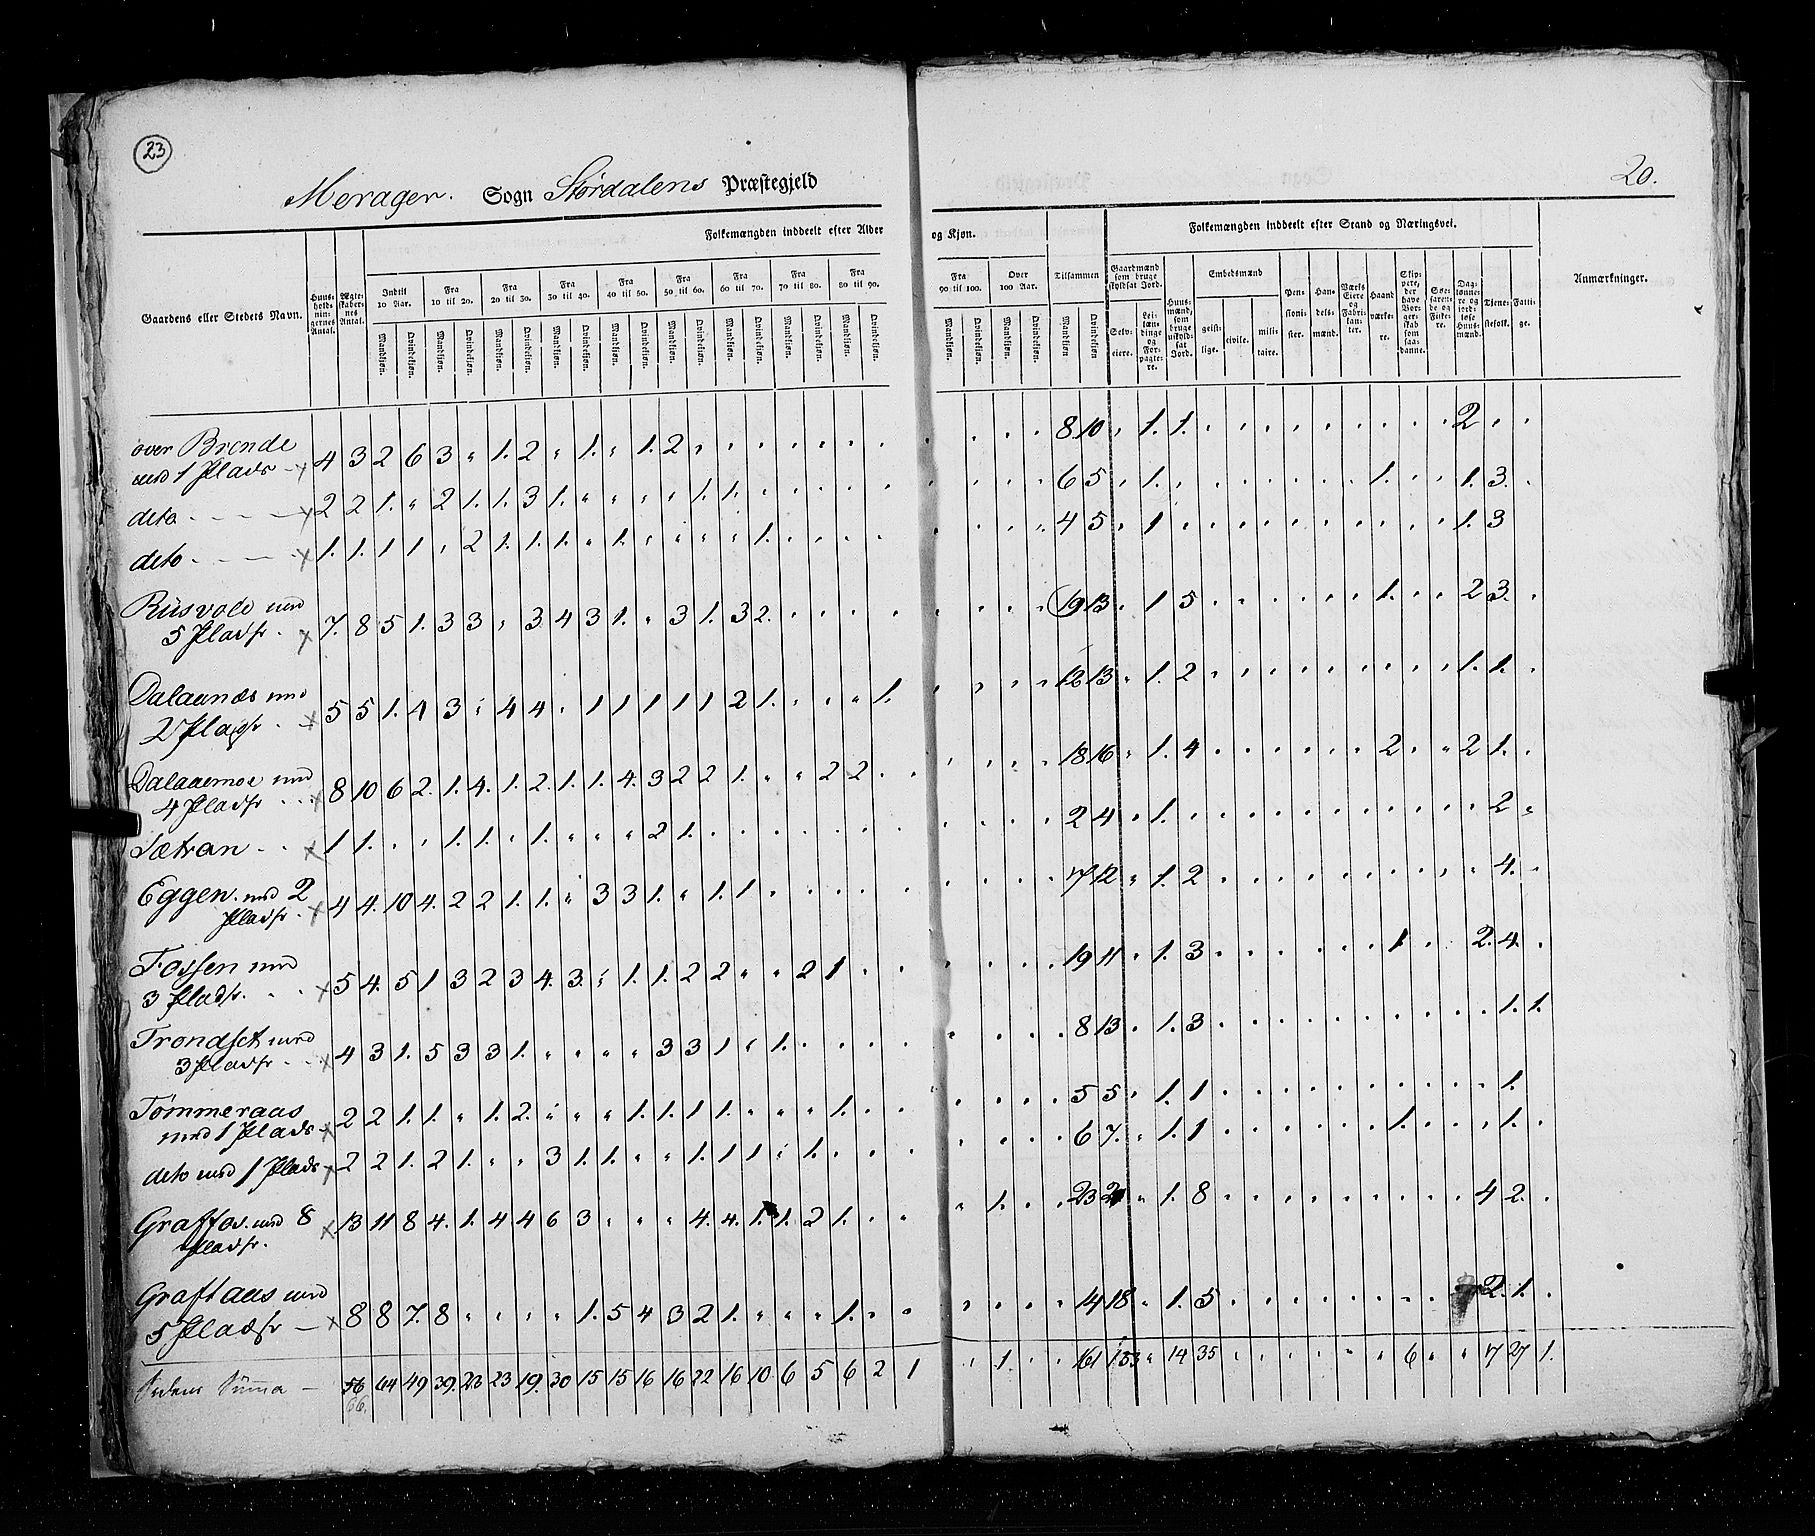 23
Merager. Sogn Størdalens Præstegjeld
20.
Folkemængden inddeelt efter Alder og Kjøn.
Folkemængden inddeelt efter Stand og Næringsvei.
Gaardens eller Stedets Navn.
Huusholdningernes Antal.
Ægteskabernes Antal.
Indtil 10 Aar.
Fra 10 til 20.
Fra 20 til 30.
Fra 30 til 40.
Fra 40 til 50.
Fra 50 til 60.
Fra 60 til 70.
Fra 70 til 80.
Fra 80 til 90.
Fra 90 til 100.
Over 100 Aar.
Tilsammen
Mandkjøn. Qvindekjøn.
Gaardmænd som bruge skyldsat Jord.
Selveiere.
Leilændinge og Forpagtere.
Huusmænd, som bruge uskyldsat Jord.
Embedsmænd
geistlige. civile. militaire.
Pensionister.
Handelsmænd.
Værks Eiere og Fabrikanter.
Haandværkere.
Skippere, der have Borgerskab som saadanne.
Søefarende og Fiskere.
Daglønnere og jordløse Huusmænd.
Tjenestefolk.
Fattige.
Anmærkninger.
over Brende
med 1 Plads 4 3 2 6 3 " 1. 2 " 1. " 1. 2 8 10 1. 1. 2
deto 2 2 1. " 2 1. 1. 3 1. " " " " 1. 1. 6 5 1. 1. 1. 3.
deto 1. 1. 1 1 " 2 1. 1. 1. " 1. " " " " 1. 4 5 1 1. 3
Rusvold med
5 Pladse 7. 8 5 1. 3 3 " 3 4 3 1. " 3 1. 3 2. 19 13 1 5 1. 2 3.
Dalaanæs med
2 Pladse 5 5 1. 4 3 " 4 4 " 1 1 1 1 1 2 1. 1. 12 13 1. 2 1. 1.
Dalaaemoe med
4 Pladse 8 10 6 2. 1. 4. 1. 2. 1. 1. 4. 3 2 2 1. " " 2 2 18 16 1. 4 2 2 1.
Sætran 1 1. " " 1. 1. " 1. " " " 2 1. 2 4 1. 2
Eggen. med 2
Pladse 4 4. 10 4. 2 2 1. 1. " 3 3 1. " 1. 1 17 12 1. 2 4.
Fossen med
3 Pladse. 5 4. 5 1 3 2 3 4. 3. " 1. 1. 2 2 " " 2 1 19 11 1. 3 1 2. 4.
Trondset med
3 Pladse 4 3 1. 5 3 3 1. " " " " 3 3 1 " 1. 8 13 1. 3 1. 1.
Tømmeraas
med 1 Plads 2 2 1. 1. " 1. 2. " " " 1. 1. 1 1. " " " 1. 5 5 1. 1 1.
deto med 1 Plads 2 2 1. 2 1. " " 3 1. 1. " " 1. 1 1 " 1. 6 7. 1. 1 1. 1.
Graffos. med 8
Pladse. 13 11 8 4. 1. 4 4 6 3 " " " 4. 4. 1. 1. 2 1. 1. 23 1. 8 4 2.
Graftaas med
5 Pladse 8 8 7. 8 " " " " 1. 5 4 3 2 1. " " " 1. 14 18 1. 5 2. 1.
Sidens Summa 56 64 49 39. 23 23 19. 30 15 15 16 16 22 16 10 6 5 6 2 1 1. 161 153 14 35 6 7 27 1.
66.